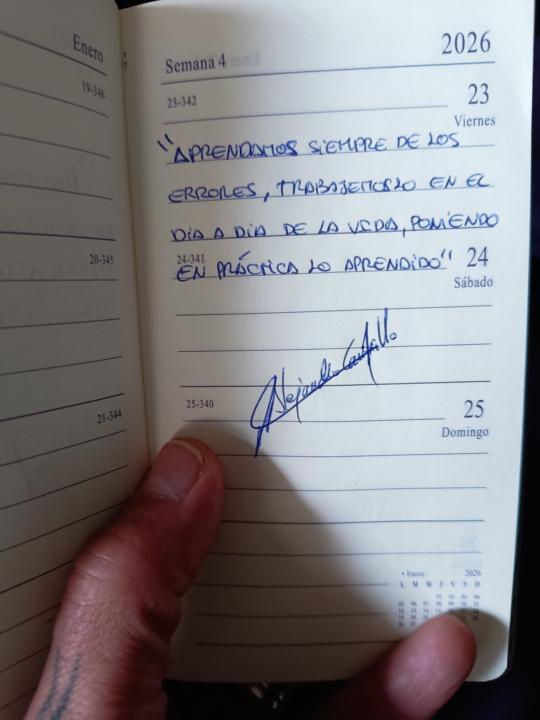 Enero
19-346
20-345
21-344
Semana 4
2026
23-342
23
Viernes
"APRENDAMOS SIEMPRE DE LOS
ERRORES, TRABAJEMOSLO EN EL
DIA A DIA DE LA VIDA, PONIENDO
24-341
24
EN PRÁCTICA LO APRENDIDO"
Sábado
Alejandro Castillo
25-340
25
Domingo
• Enero 2026
L M M J V S D